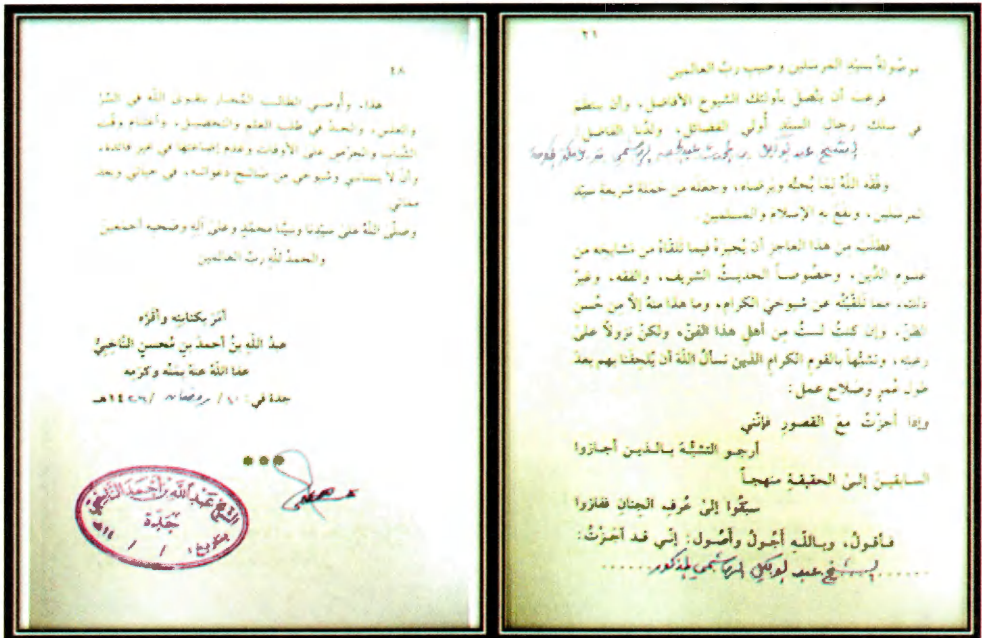 ٢٦
موصُولةً بسيّد المرسلين وحبيب ربّ العالمين
فرغب أن يتَّصل بأولئك الشيوخ الأفاضل، وأن ينتظم
في سلك رجال السيِّد أُولي الفضائل، ولدُنا الفاضل/
الشيخ عبد الوكيل بن
وفَّقه اللهُ لما يُحبُّه ويرضاه، وجعلَه من حملة شريعة سيّد
المرسلين، ونفعَ به الإسلام والمسلمين.
فطلَب مِن هذا العاجز أن يُجيزَهُ فيما تلقَّاهُ من مشايخه من
علوم الدِّين، وخصُوصاً الحديثُ الشريف، والفقه، وغيرُ
ذلك، مما تلقَّيتُه عن شيوخي الكرام، وما هذا منهُ إلاَّ مِن حُسن
الظنِّ، وإن كنتُ لستُ مِن أهلِ هذا الفنِّ، ولكنْ نزولاً على
رغبته، وتشبُّهاً بالقوم الكرام الذين نسألُ اللهَ أن يُلحقَنا بهم بعدَ
طول عُمرٍ وصَلاح عمل:
وإذا أجَزْتُ معَ القصورِ فإنَّني
أرجو التشبُّهَ بالذين أجازوا
السابقينَ إلىٰ الحقيقةِ منهجاً
سبَقُوا إلىٰ غُرفِ الجِنانِ ففازوا
فأقولُ، وباللهِ أجُولُ وأصُول: إنِّي قد أجَزْتُ:
الشيخ عبد الوكيل الهاشمي المذكور
٢٨
هذا، وأُوصي الطالبَ المُجازَ بتقوى الله في السِّرِّ
والعلَن، والجدِّ في طلب العلم والتحصيل، واغتنام وقت
الشباب والحِرْص على الأوقات وعدم إضاعتها في غير فائدة،
وأنْ لا ينساني وشيوخي من صالح دعواته، في حياتي وبعد
مماتي.
وصلَّى اللهُ علىٰ سيِّدنا ونبيِّنا محمَّدٍ وعلىٰ آلهِ وصَحبه أجمعين
والحمدُ للهِ ربِّ العالمين
أمَرَ بكتابتِه وأقرَّه
عبدُ اللهِ بنُ أحمدَ بنِ مُحسنٍ النَّاخِبيُّ
عفا اللهُ عنهُ بمنِّه وكرَمِه
جدة في: / رمضان / ١٤٢٦هـ
الشيخ عبد الله بن أحمد الناخبي
جدة
/ / ١٤هـ